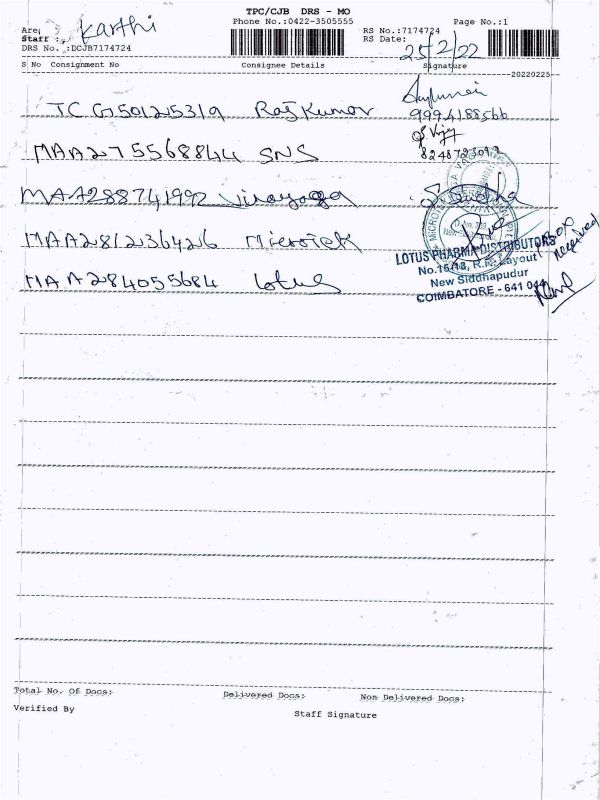 TPC/CJB DRS - MO
Phone No.:0422-3505555
Page No.:1
Area
Staff :
Karthi
DRS No. :DCJB7174724
RS No.:7174724
RS Date:
25/2/22
S No Consignment No
Consignee Details
Signature
20220225
TCG501215319 Rajkumar
9994188566
MAA275568844 SNS
Vijay
8248723092
MAA288741992 Vinayaga
MAA281236426 Microtek
MAA284055684 Lotus
LOTUS PHARMA DISTRIBUTORS
Layout
New Siddhapudur
COIMBATORE - 641 044
Box
Received
Total No. Of Docs:
Delivered Docs:
Non Delivered Docs:
Verified By
Staff Signature